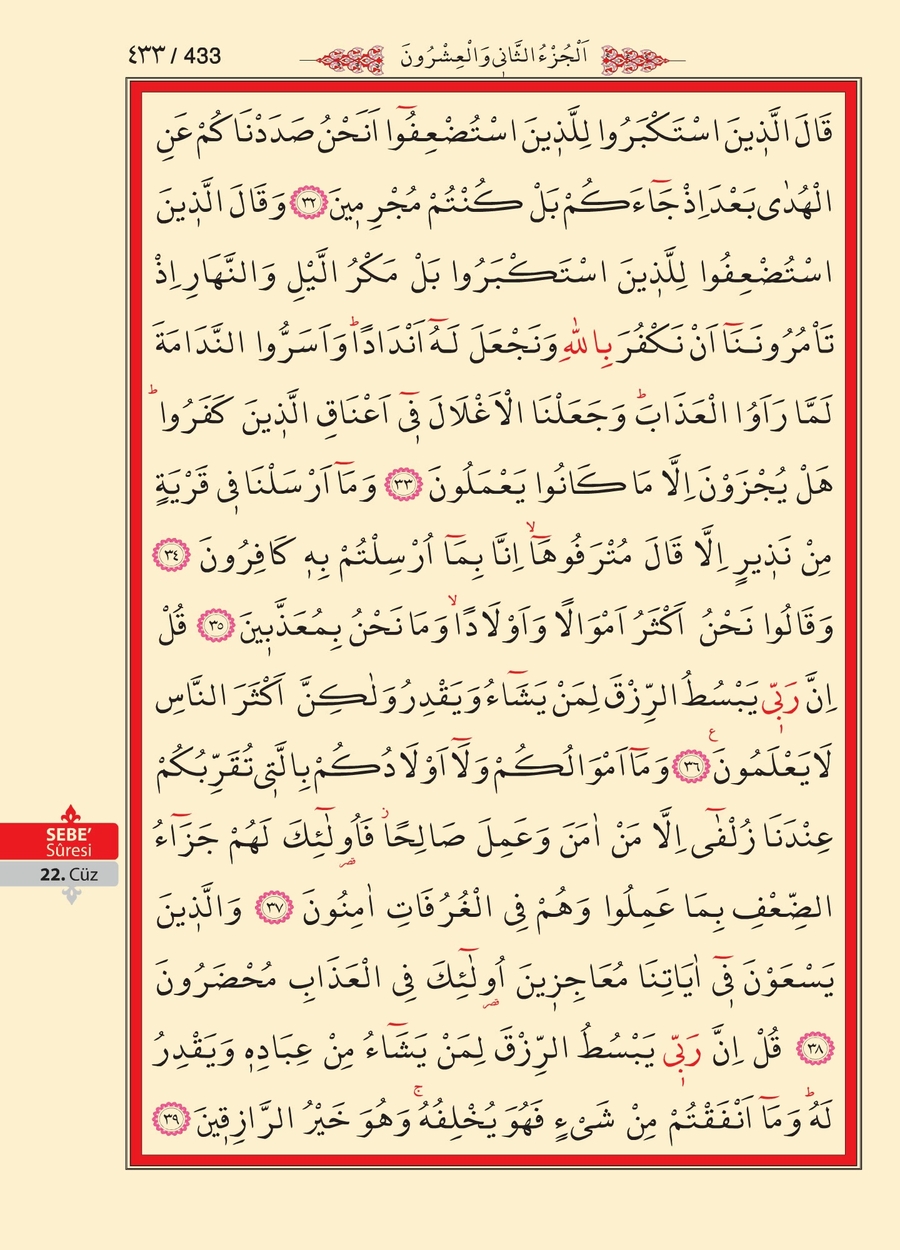 ٤٣٣ / 433
اَلْجُزْءُ الثَّانِي وَالْعِشْرُونَ
قَالَ الَّذِينَ اسْتَكْبَرُوا لِلَّذِينَ اسْتُضْعِفُٓوا اَنَحْنُ صَدَدْنَاكُمْ عَنِ
الْهُدٰى بَعْدَ اِذْ جَٓاءَكُمْ بَلْ كُنْتُمْ مُجْرِمِينَ ﴿٣٢﴾ وَقَالَ الَّذِينَ
اسْتُضْعِفُوا لِلَّذِينَ اسْتَكْبَرُوا بَلْ مَكْرُ الَّيْلِ وَالنَّهَارِ اِذْ
تَأْمُرُونَنَٓا اَنْ نَكْفُرَ بِاللّٰهِ وَنَجْعَلَ لَهُٓ اَنْدَادًاۜ وَاَسَرُّوا النَّدَامَةَ
لَمَّا رَاَوُا الْعَذَابَۜ وَجَعَلْنَا الْاَغْلَالَ فِٓي اَعْنَاقِ الَّذِينَ كَفَرُواۜ
هَلْ يُجْزَوْنَ اِلَّا مَا كَانُوا يَعْمَلُونَ ﴿٣٣﴾ وَمَٓا اَرْسَلْنَا فِي قَرْيَةٍ
مِنْ نَذِيرٍ اِلَّا قَالَ مُتْرَفُوهَٓاۙ اِنَّا بِمَٓا اُرْسِلْتُمْ بِهِ كَافِرُونَ ﴿٣٤﴾
وَقَالُوا نَحْنُ اَكْثَرُ اَمْوَالًا وَاَوْلَادًاۙ وَمَا نَحْنُ بِمُعَذَّبِينَ ﴿٣٥﴾ قُلْ
اِنَّ رَبِّي يَبْسُطُ الرِّزْقَ لِمَنْ يَشَٓاءُ وَيَقْدِرُ وَلٰكِنَّ اَكْثَرَ النَّاسِ
لَا يَعْلَمُونَ ﴿٣٦﴾ ع وَمَٓا اَمْوَالُكُمْ وَلَٓا اَوْلَادُكُمْ بِالَّتِي تُقَرِّبُكُمْ
عِنْدَنَا زُلْفٰٓى اِلَّا مَنْ اٰمَنَ وَعَمِلَ صَالِحًاۘ فَاُو۬لٰٓئِكَ لَهُمْ جَزَٓاءُ
الضِّعْفِ بِمَا عَمِلُوا وَهُمْ فِي الْغُرُفَاتِ اٰمِنُونَ ﴿٣٧﴾ وَالَّذِينَ
يَسْعَوْنَ فِٓي اٰيَاتِنَا مُعَاجِزِينَ اُو۬لٰٓئِكَ فِي الْعَذَابِ مُحْضَرُونَ
﴿٣٨﴾ قُلْ اِنَّ رَبِّي يَبْسُطُ الرِّزْقَ لِمَنْ يَشَٓاءُ مِنْ عِبَادِهِ وَيَقْدِرُ
لَهُۜ وَمَٓا اَنْفَقْتُمْ مِنْ شَيْءٍ فَهُوَ يُخْلِفُهُۚ وَهُوَ خَيْرُ الرَّازِقِينَ ﴿٣٩﴾
SEBE’
Sûresi
22. Cüz